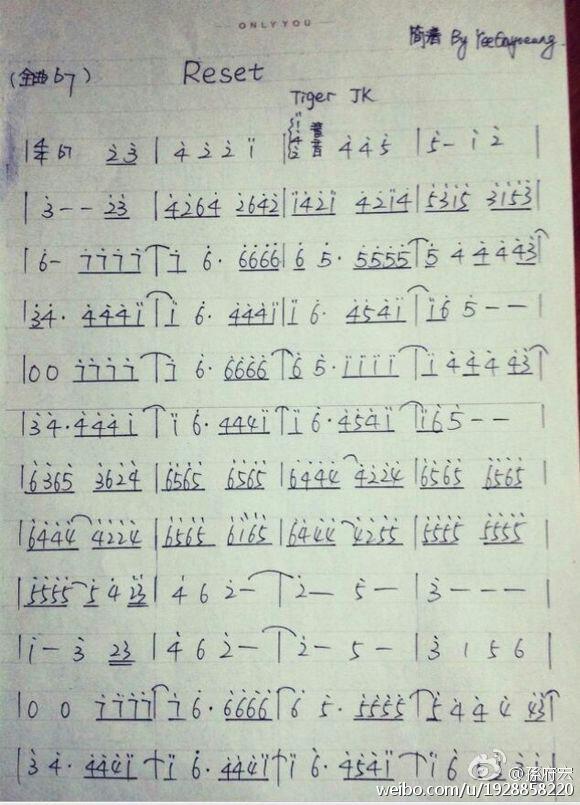 ONLY YOU
简谱 By
(全曲 b7) Reset
Tiger JK
|4/4 b7 2̇3̇ | 4̇ 2̇ 2̇ 1̈ | 4̇ 4̇ 5̇ | 5̇- 1̇ 2̇ |
| 3̇-- 2̇3̇ | 4̇2̇6̇4̇ 2̇6̇4̇2̇ | 1̈4̇2̇1̈ 4̇2̇1̈4̇ | 5̇3̇1̇5̇ 3̇1̇5̇3̇ |
| 6̇- 7̇7̇7̇7̇ | 7̇ 6̇· 6̇6̇6̇6̇ | 6̇ 5̇· 5̇5̇5̇5̇ | 5̇ 4̇ 4̇ 4̇ 4̇3̇ |
| 3̇4̇· 4̇4̇4̇1̈ | 1̈ 6̇· 4̇4̇4̇1̈ | 1̈ 6̇· 4̇5̇4̇1̈ | 1̈6̇ 5̇-- |
|00 7̇7̇7̇7̇ | 7̇ 6̇· 6̇6̇6̇6̇ | 6̇ 5̇· 1̈1̈1̈1̈ | 1̈ 4̇ 4̇ 4̇ 4̇3̇ |
| 3̇4̇· 4̇4̇4̇1̇ | 1̈ 6̇· 4̇4̇4̇1̈ | 1̈ 6̇· 4̇5̇4̇1̈ | 1̈6̇5̇-- |
| 6̇3̇6̇5̇ 3̇6̇2̇4̇ | 6̇5̇6̇5̇ 6̇5̇6̇5̇ | 6̇4̇4̇4̇ 4̇2̇2̇4̇ | 6̇5̇6̇5̇ 6̇5̇6̇5̇ |
| 6̇4̇4̇4̇ 4̇2̇2̇4̇ | 6̇5̇6̇5̇ 6̇1̈6̇5̇ | 6̇4̇4̇4̇ 4̇2̇5̇5̇ | 5̇5̇5̇5̇ 5̇5̇5̇5̇ |
| 5̇5̇5̇5̇ 5̇ 4̇ 2̇3̇ | 4̇ 6 2̇- | 2̇- 5- | 3̇--- |
| 1̇- 3̇ 2̇3̇ | 4̇ 6 2̇- | 2̇- 5- | 3̇ 1 5 6 |
| 0 0 7̇7̇7̇7̇ | 7̇ 6̇· 6̇6̇6̇6̇ | 6̇ 5̇· 5̇5̇5̇5̇ | 5̇ 4̇ 4̇ 4̇ 4̇3̇ |
| 3̇ 4̇· 4̇4̇4̇1̈ | 1̈ 6̇· 4̇4̇4̇1̈ | 1̈ 6̇· 4̇5̇4̇1̈ | 1̈ 6̇
weibo.com/u/1928858220